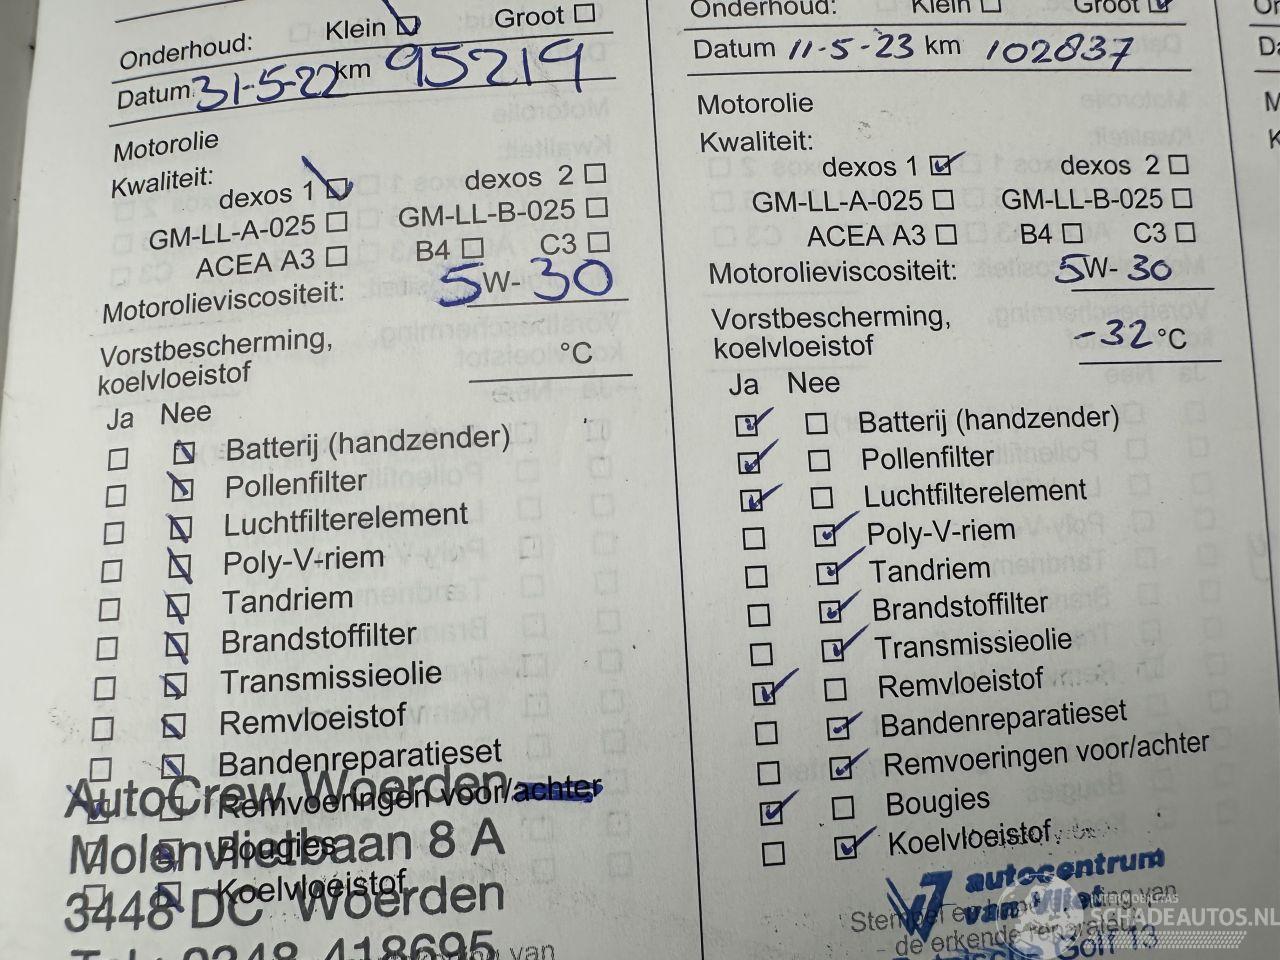 Onderhoud: Klein Groot
Datum: 31-5-22 km 95219
Motorolie
Kwaliteit:
dexos 1 dexos 2
GM-LL-A-025 GM-LL-B-025
ACEA A3 B4 C3
Motorolieviscositeit: 5W-30
Vorstbescherming,
koelvloeistof °C
Ja Nee
Batterij (handzender)
Pollenfilter
Luchtfilterelement
Poly-V-riem
Tandriem
Brandstoffilter
Transmissieolie
Remvloeistof
Bandenreparatieset
Remvoeringen voor/achter
Bougies
Koelvloeistof
AutoCrew Woerden
Molenvlietbaan 8 A
3448 DC Woerden
Tel.: 0348-418695
van
Onderhoud: Klein Groot
Datum 11-5-23 km 102837
Motorolie
Kwaliteit:
dexos 1 dexos 2
GM-LL-A-025 GM-LL-B-025
ACEA A3 B4 C3
Motorolieviscositeit: 5W-30
Vorstbescherming,
koelvloeistof -32 °C
Ja Nee
Batterij (handzender)
Pollenfilter
Luchtfilterelement
Poly-V-riem
Tandriem
Brandstoffilter
Transmissieolie
Remvloeistof
Bandenreparatieset
Remvoeringen voor/achter
Bougies
Koelvloeistof
autocentrum
van
Stempel en van
de erkende reparateur
Golf 13
SCHADEAUTOS.NL